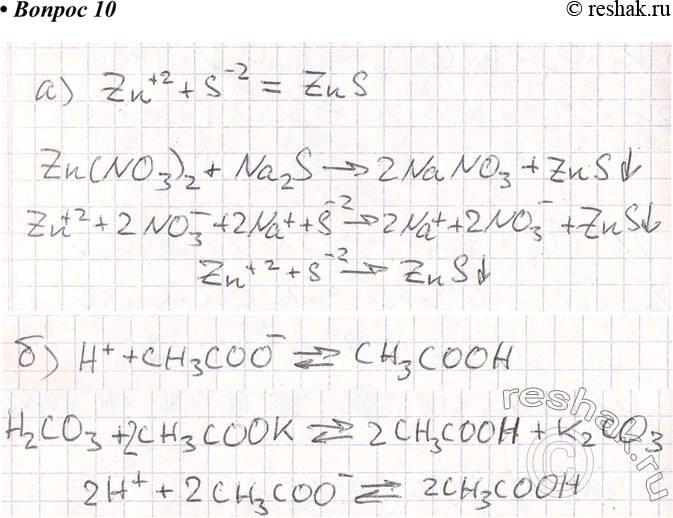 • Вопрос 10
© reshak.ru
а) Zn⁺² + S⁻² = ZnS
Zn(NO₃)₂ + Na₂S → 2NaNO₃ + ZnS↓
Zn⁺² + 2NO₃⁻ + 2Na⁺ + S⁻² → 2Na⁺ + 2NO₃⁻ + ZnS↓
Zn⁺² + S⁻² → ZnS↓
б) H⁺ + CH₃COO⁻ ⇄ CH₃COOH
H₂CO₃ + 2CH₃COOK ⇄ 2CH₃COOH + K₂CO₃
2H⁺ + 2CH₃COO⁻ ⇄ 2CH₃COOH
reshak.ru